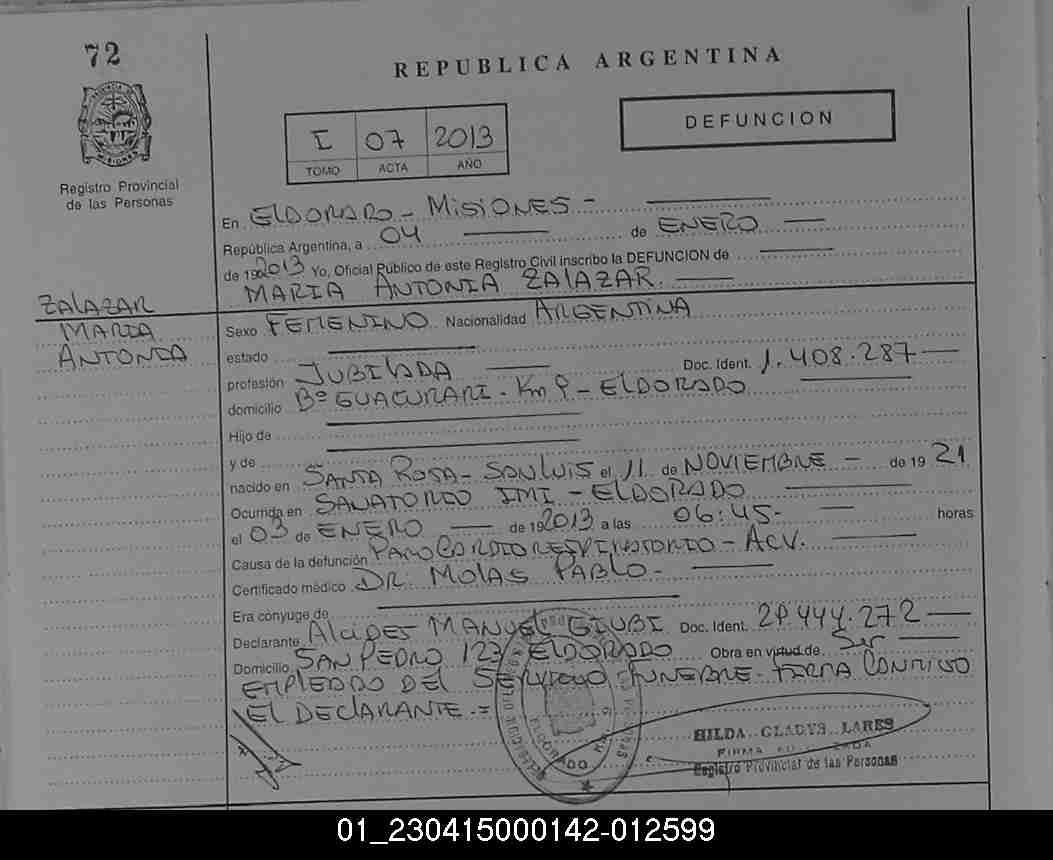 72
REPUBLICA ARGENTINA
DEFUNCION
I 07 2013
TOMO ACTA AÑO
Registro Provincial
de las Personas
En ELDORADO - MISIONES -
República Argentina, a 04 de ENERO
de 192013 Yo, Oficial Público de este Registro Civil inscribo la DEFUNCION de
MARIA ANTONIA ZALAZAR
ZALAZAR
MARIA
ANTONIA
Sexo FEMENINO Nacionalidad ARGENTINA
estado
profesión JUBILADA Doc. Ident. 1.408.287
domicilio Bº GUACURARI - Km 9 - ELDORADO
Hijo de
y de
nacido en SANTA ROSA - SAN LUIS el 11 de NOVIEMBRE - de 19 21
Ocurrida en SANATORIO IMI - ELDORADO
el 03 de ENERO de 192013 a las 06:45- horas
Causa de la defunción PARO CARDIORESPIRATORIO - ACV.
Certificado médico DR. MOLAS PABLO -
Era cónyuge de
Declarante MANUEL GIUBI Doc. Ident. 29.444.272
Domicilio SAN PEDRO 123 ELDORADO Obra en virtud de Ser
EMPLEADO DEL SERVICIO FUNEBRE - FIRMA CONMIGO
EL DECLARANTE.=
HILDA GLADYS LARES
FIRMA
Registro Provincial de las Personas
01_230415000142-012599